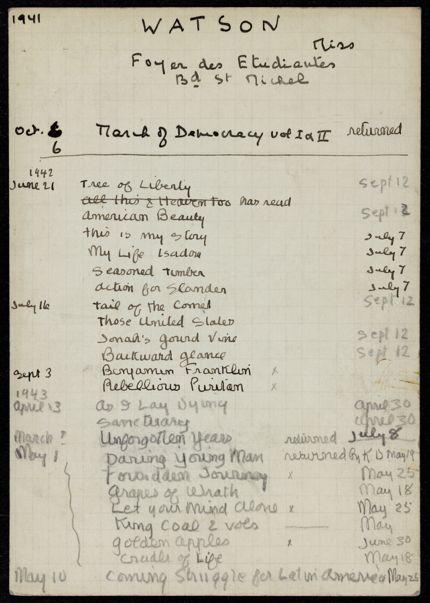 1941
WATSON
Miss
Foyer des Etudiantes
Bd St Michel
Oct. 6 March of Democracy vol I & II returned
6
1942
June 21 Tree of Liberty Sept 12
All this & Heaven too has read
American Beauty Sept 12
This is my story July 7
My Life Isadora July 7
Seasoned Timber July 7
Action for Slander July 7
July 16 Tail of the Comet Sept 12
Those United States
Jonah's gourd Vine Sept 12
Backward glance Sept 12
Sept 3 Benjamin Franklin x
Rebellious Puritan x
1943
April 13 As I Lay Dying April 30
Sanctuary April 30
March ? Unforgotten Years returned July 8
May 1 Daring Young Man returned By K D May 19
Forbidden Journey x May 25
Grapes of Wrath May 18
Let your Mind Alone x May 25
King Coal 2 vols — May
Golden Apples x June 30
Cradle of Life May 18
May 10 Coming Struggle for Latin America May 25